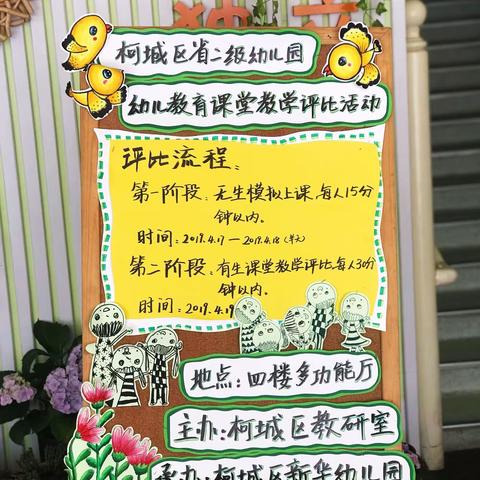 柯城区省二级幼儿园
幼儿教育课堂教学评比活动
评比流程:
第一阶段:无生模拟上课,每人15分
钟以内。
时间:2019.4.17—2019.4.18(半天)
第二阶段:有生课堂教学评比,每人30分
钟以内。
时间:2019.4.19
地点:四楼多功能厅
主办:柯城区教研室
承办:柯城区新华幼儿园